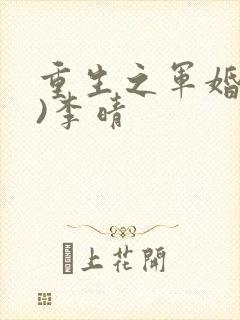 重生之军婚
)李晴
上花開